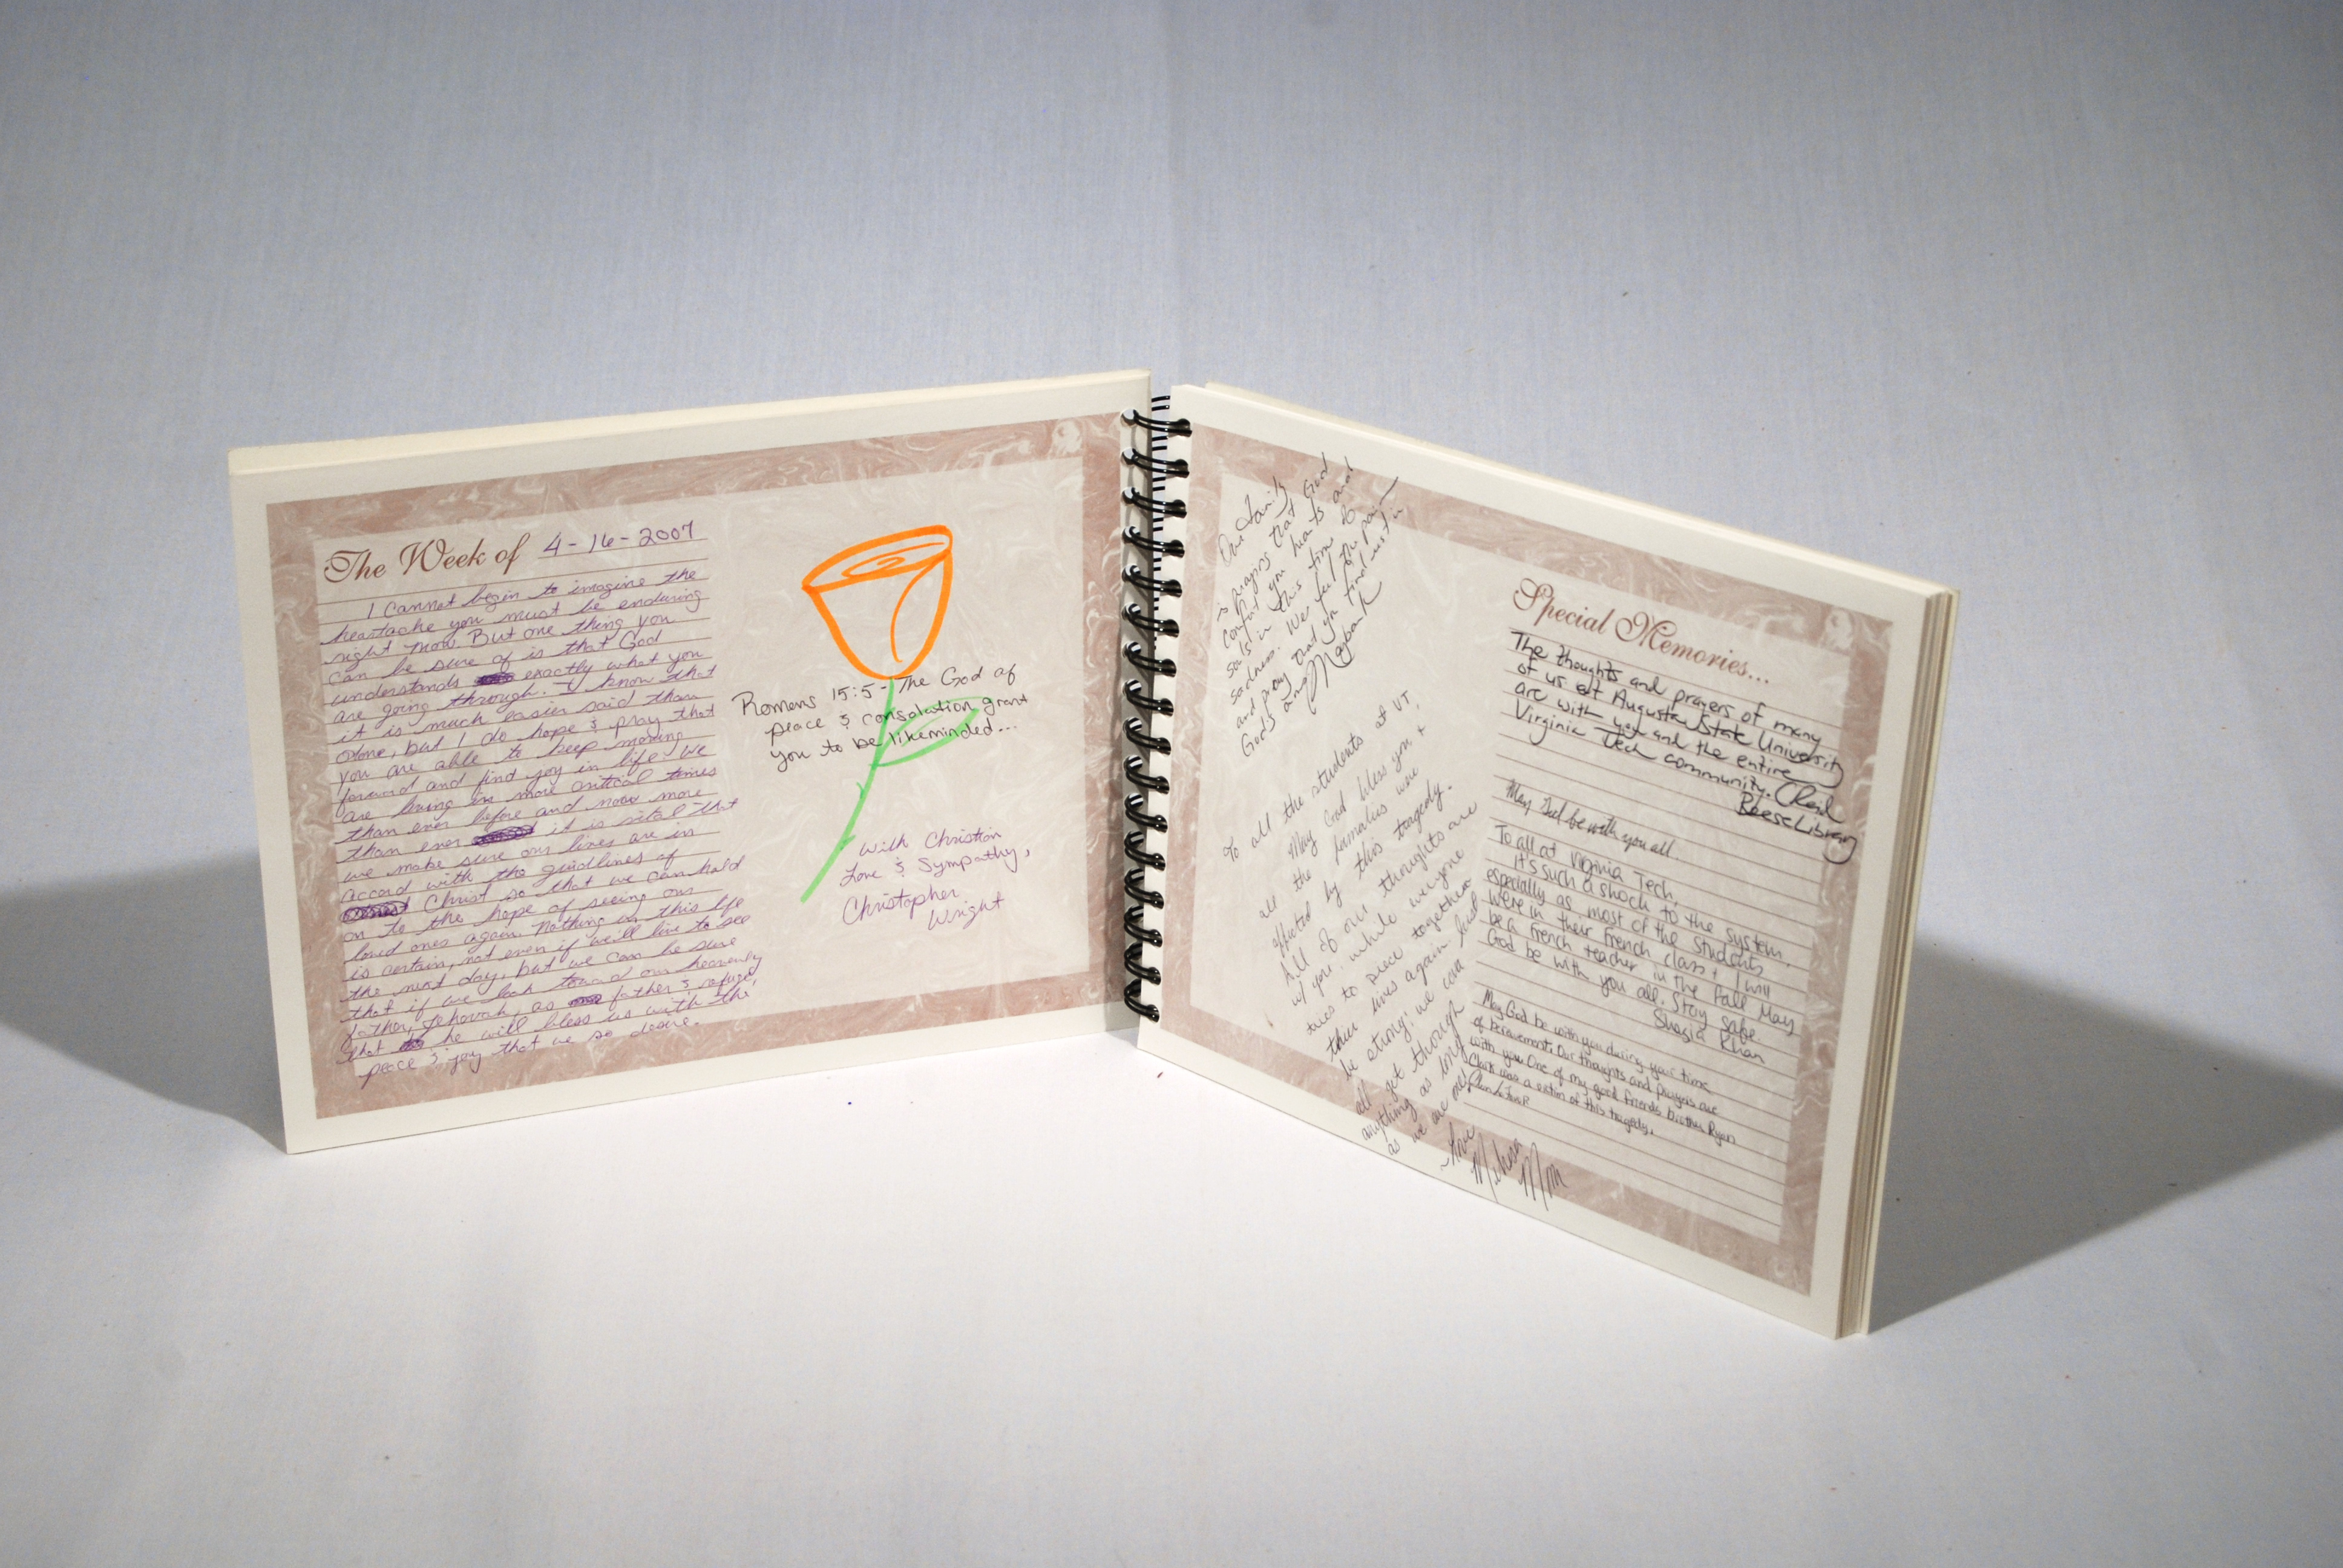 The Week of 4-16-2007
I cannot begin to imagine the
heartache you must be enduring
right now. But one thing you
can be sure of is that God
understands exactly what you
are going through. I know that
it is much easier said than
done, but I do hope & pray that
you are able to keep moving
forward and find joy in life. We
are living in more critical times
than ever before and now more
than ever it is vital that
we make sure our lives are in
accord with the guidlines of
Christ so that we can hold
on to the hope of seeing our
loved ones again. Nothing in this life
is certain, not even if we'll live to see
the next day, but we can be sure
that if we look toward our heavenly
father, Jehovah, as father & refuge,
that he will bless us with the
peace & joy that we so desire.
Romans 15:5 - The God of
peace & consolation grant
you to be likeminded...
With Christian
Love & Sympathy,
Christopher
Wright
Our family
is praying that God
comfort your hearts and
souls in this time of
sadness. We feel the pain
and pray that you find rest in
God's arms
To all the students at VT,
May God bless you +
all the families were
affected by this tragedy.
All of our thoughts are
w/ you. while everyone
tries to piece together
their lives again just
be strong! we can
all get through
anything as long
as we are one!
~ Love
Melissa
Special Memories...
The thoughts and prayers of many
of us at Augusta State University
are with you and the entire
Virginia Tech community.
Reese Library
May God be with you all.
To all at Virginia Tech,
It's such a shock to the system.
especially as most of the students
were in their French class + I will
be a French teacher in the fall. May
God be with you all. Stay safe.
Shazia Khan
May God be with you during your time
of bereavement. Our thoughts and prayers are
with you. One of my good friends brother Ryan
Clark was a victim of this tragedy.